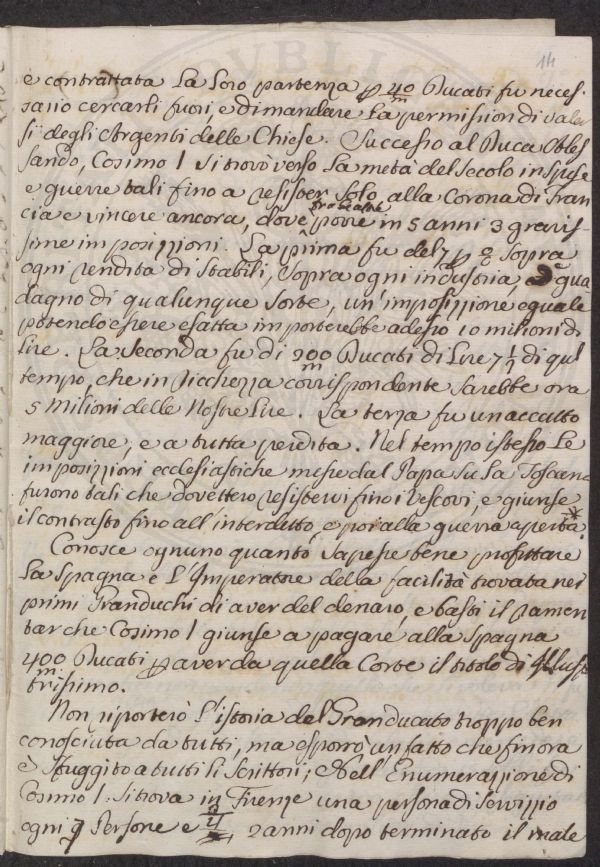 14
è contrattata la loro partenza p 40/m Ducati fu neces-
sario cercarli fuori, e dimandare la permission di valer
si degli Argenti delle Chiese. Successo al Duca Ales
sandro, Cosimo I si trovò verso la metà del secolo in spese
e guerre tali fino a resister solo alla Corona di Fran
cia e vincere ancora, dove fra le altre porre in 5 anni 3 gravis-
sime imposizzioni. La prima fu del 7 p % sopra
ogni rendita di stabili, sopra ogni industria, o gua
dagno di qualunque sorte, un' imposizzione eguale
potendo essere esatta importerebbe adesso 10 milioni di
Lire. La seconda fu di 200/m Ducati di Lire 7 1/2 di quel
tempo, che in ricchezza corrispondente sarebbe ora
5 Milioni delle Nostre Lire. La terza fu un accatto
maggiore, e a tutta perdita. Nel tempo istesso le
imposizzioni ecclesiastiche messe dal Papa su la Toscana
furono tali che dovettero resistervi fino i Vescovi, e giunse
il contrasto fino all' interdetto, e poi alla guerra aperta.*
Conosce ognuno quanto sapesse bene profittare
la Spagna e l'Imperatore della facilità trovata nei
primi Granduchi di aver del denaro, e basti il ramen
tar che Cosimo I giunse a pagare alla Spagna
400/m Ducati p aver da quella Corte il titolo di Illust
trissimo.
Non riporterò l'istoria del Granducato troppo ben
conosciuta da tutti, ma esporrò un fatto che finora
è sfuggito a tutti li Scrittori; Nell' Enumerazzione di
Cosimo I si trova in Firenze una persona di servizzio
ogni Persone e 2 anni dopo terminato il male